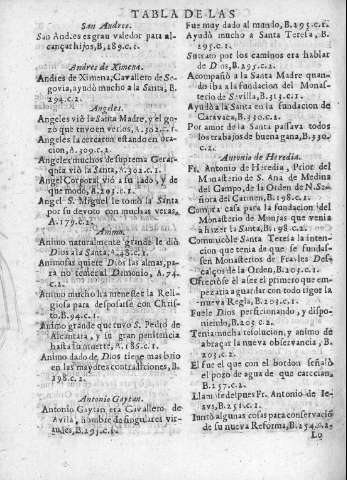 TABLA DE LAS
San Andres.
San Andres es gran valedor para al-
cançar hijos, B, 189. c. 1.
Andres de Ximena.
Andres de Ximena, Cavallero de Se-
govia, ayudò mucho a la Santa, B.
294. c. 2.
Angeles.
Angeles viò la Santa Madre, y el go-
zo que tuvo en verlos, A. 302. c. 1.
Angeles la cercaron estando en ora-
cion, A. 309. c. 2.
Angeles muchos de suprema Gerar-
quia viò la Santa, A. 302. c. 1.
Angel Corporal viò a su lado, y de
que modo, A. 203. c. 1.
Angel S. Miguel le tomò la Santa
por su devoto con muchas veras,
A. 179. c. 2.
Animo.
Animo naturalmente grande le diò
Dios a la Santa, A. 48. c. 1.
Animosas quiere Dios las almas, pa-
ra no temer al Demonio, A. 74.
c. 2.
Animo mucho ha menester la Reli-
giosa para desposarse con Chris-
to, B. 94. c. 1.
Animo grande que tuvo S. Pedro de
Alcantara, y su gran penitencia
hasta su muerte, A. 186. c. 1.
Animo dado de Dios tiene mas brio
en las mayores contradiciones, B.
198. c. 2.
Antonio Gaytan.
Antonio Gaytan era Cavallero de
Avila, hombre de singulares vir-
tudes, B. 293. c. 1.
Fue muy dado al mundo, B. 293. c. 1.
Ayudò mucho a Santa Teresa, B.
293. c. 1.
Su trato por los caminos era hablar
de Dios, B. 295. c. 2.
Acompañò a la Santa Madre quan-
do iba a la fundacion del Monas-
terio de Sevilla, B. 313. c. 1.
Ayudò a la Santa en la fundacion de
Caravaca, B. 330. c. 1.
Por amor de la Santa passava todos
los trabajos de buena gana, B. 330.
c. 2.
Antonio de Heredia.
Fr. Antonio de Heredia, Prior del
Monasterio de S. Ana de Medina
del Campo, de la Orden de N. Se-
ñora del Carmen, B. 198. c. 1.
Comprò casa para la fundacion del
Monasterio de Monjas que venia
a hazer la Santa, B. 198. c. 2.
Comunicòle Santa Teresa la inten-
cion que tenia de que se fundas-
sen Monasterios de Frayles Des-
calços de la Orden, B. 203. c. 1.
Ofreciòse el a ser el primero que em-
pezaria a guardar con todo rigor la
nueva Regla, B. 203. c. 1.
Fuele Dios perficionando, y dispo-
niendo, B. 203. c. 2.
Tenia mucha resolucion, y animo de
abraçar la nueva observancia, B.
203. c. 2.
El fue el que con el bordon señalò
el pozo de agua de que carecian,
B. 257. c. 2.
Llamòse despues Fr. Antonio de Ie-
sus, B. 251. c. 2.
Juntò algunas cosas para conservaciò
de su nueva Reforma, B. 254. c. 2.
Lo